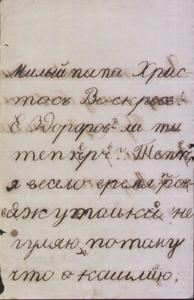 Милый папа Хрис
тось Воскресъ!
Здоровъ ли ты
теперъ?
я весело время про
важу только не
гуляю, потому
что я кашляю.